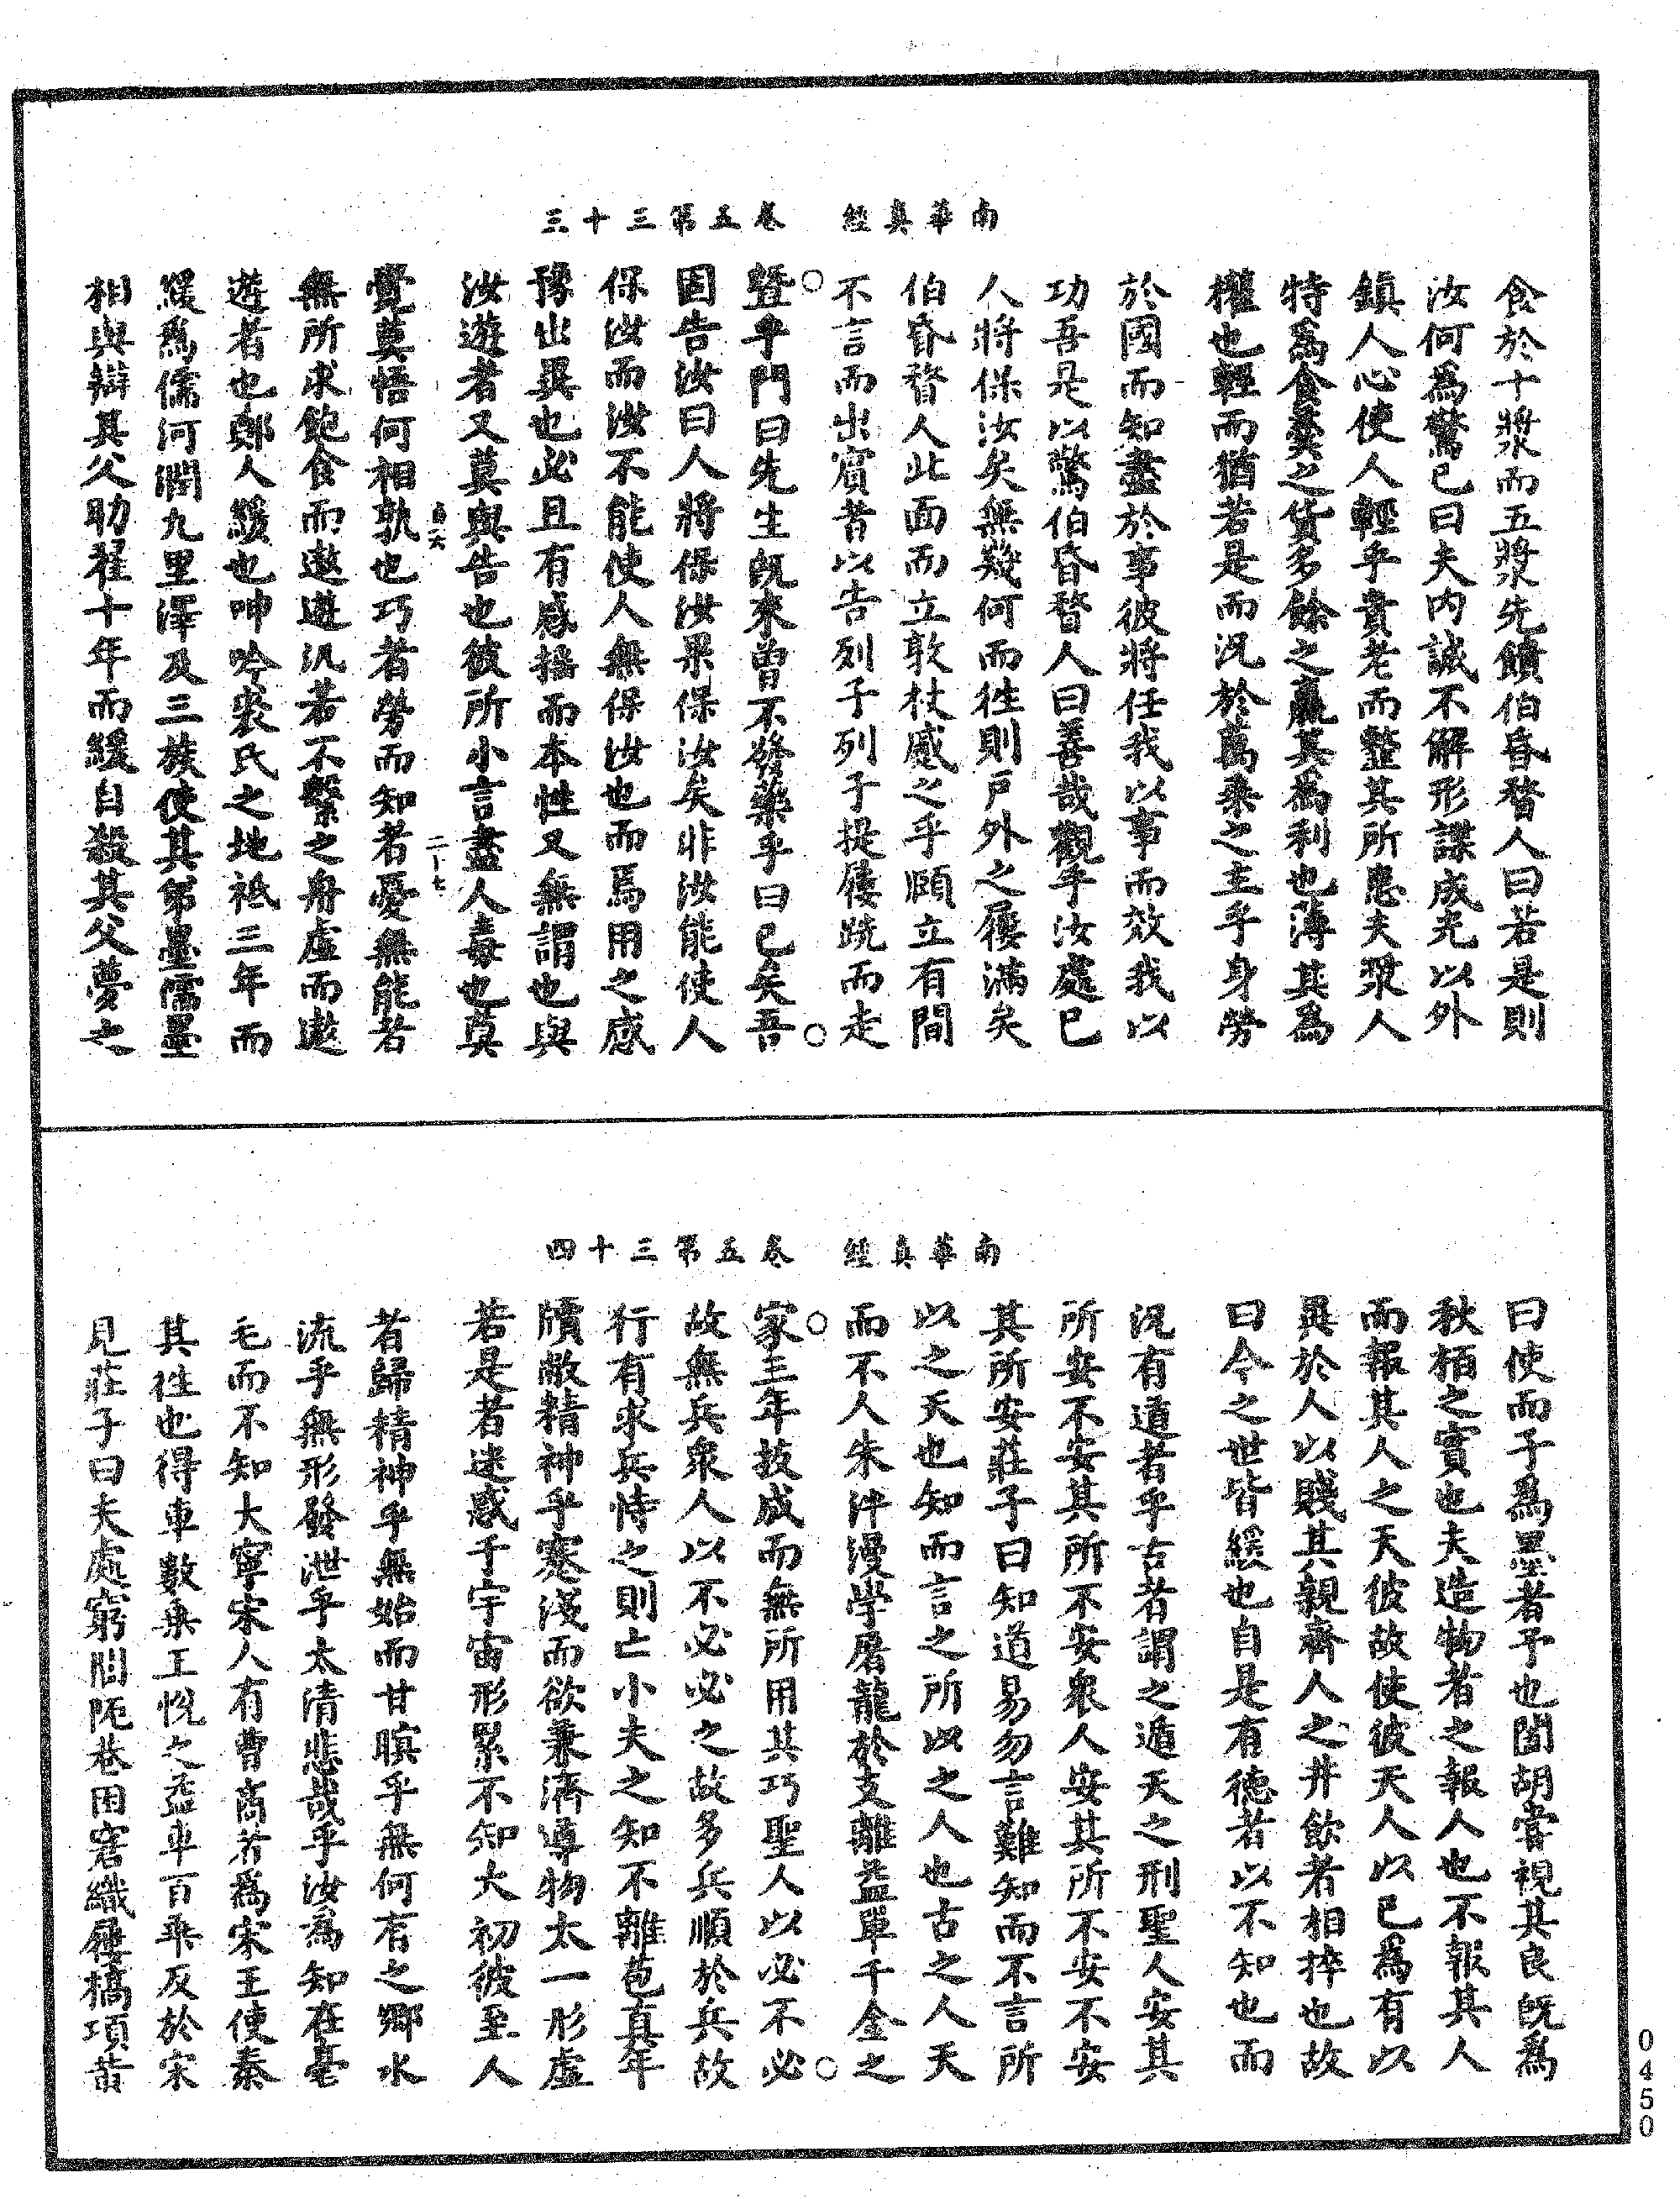 南華真經　卷五第三十三
食於十漿而五漿先饋伯昏瞀人曰若是則
汝何為驚已曰夫內誠不解形諜成光以外
鎮人心使人輕乎貴老而𩐋其所患夫漿人
特為食羹之貨多餘之贏其為利也薄其為
權也輕而猶若是而況於萬乘之主乎身勞
於國而知盡於事彼將任我以事而效我以
功吾是以驚伯昏瞀人曰善哉觀乎汝處已
人將保汝矣無幾何而徃則戶外之屨滿矣
伯昏瞀人北面而立敦杖蹙之乎頤立有間
不言而出賓者以告列子列子提屨跣而走
暨乎門曰先生旣來曾不發藥乎曰已矣吾
固告汝曰人將保汝果保汝矣非汝能使人
保汝而汝不能使人無保汝也而焉用之感
豫出異也必且有感搖而本性又無謂也與
汝遊者又莫與告也彼所小言盡人毒也莫
覺莫悟何相孰也巧者勞而知者憂無能者
無所求飽食而遨遊汎若不繫之舟虛而遨
遊者也鄭人緩也呻吟裘氏之地祗三年而
緩為儒河潤九里澤及三族使其弟墨儒墨
相與辯其父助翟十年而緩自殺其父夢之
南華真經　卷五第三十四
曰使而子為墨者予也闔胡嘗視其良旣為
秋栢之實也夫造物者之報人也不報其人
而報其人之天彼故使彼天人以已為有以
異於人以賤其親齊人之井飲者相捽也故
曰今之世皆緩也自是有德者以不知也而
況有道者乎古者謂之遁天之刑聖人安其
所安不安其所不安衆人安其所不安不安
其所安莊子曰知道易勿言難知而不言所
以之天也知而言之所以之人也古之人天
而不人朱泙漫學屠龍於支離益單千金之
家三年技成而無所用其巧聖人以必不必
故無兵衆人以不必必之故多兵順於兵故
行有求兵恃之則亡小夫之知不離苞苴竿
牘敝精神乎蹇淺而欲兼濟導物太一形虛
若是者迷惑于宇宙形累不知太初彼至人
者歸精神乎無始而甘瞑乎無何有之鄉水
流乎無形發泄乎太清悲哉乎汝為知在毫
毛而不知大寧宋人有曹商者為宋王使秦
其徃也得車數乘王悅之益車百乘反於宋
見莊子曰夫處窮閭阨巷困窘織屨槁項黃
0450